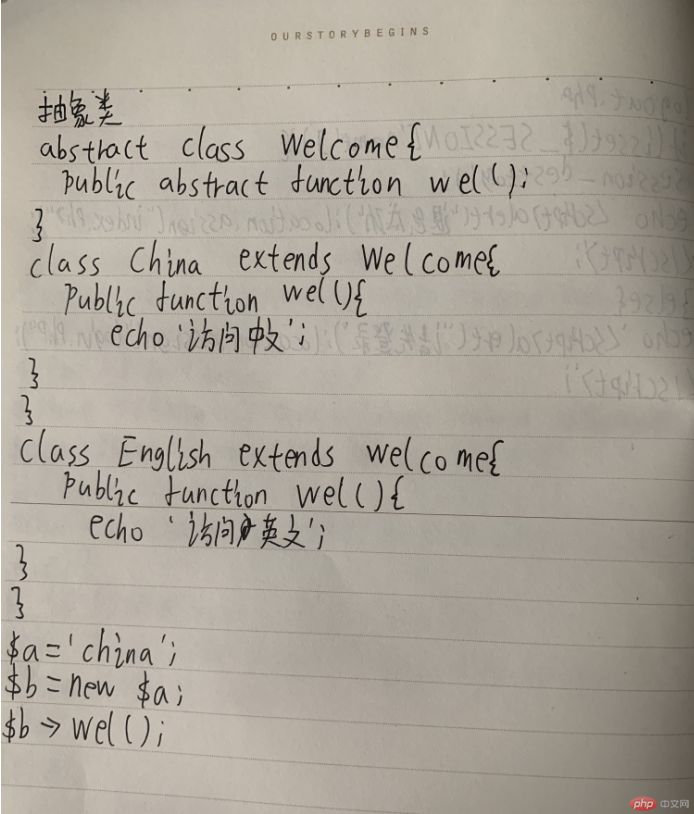 OURSTORYBEGINS
抽象类
abstract class Welcome{
public abstract function wel();
}
class China extends Welcome{
public function wel(){
echo '访问中文';
}
}
class English extends welcome{
public function wel(){
echo '访问英文';
}
}
$a='china';
$b=new $a;
$b->wel();
php 中文网